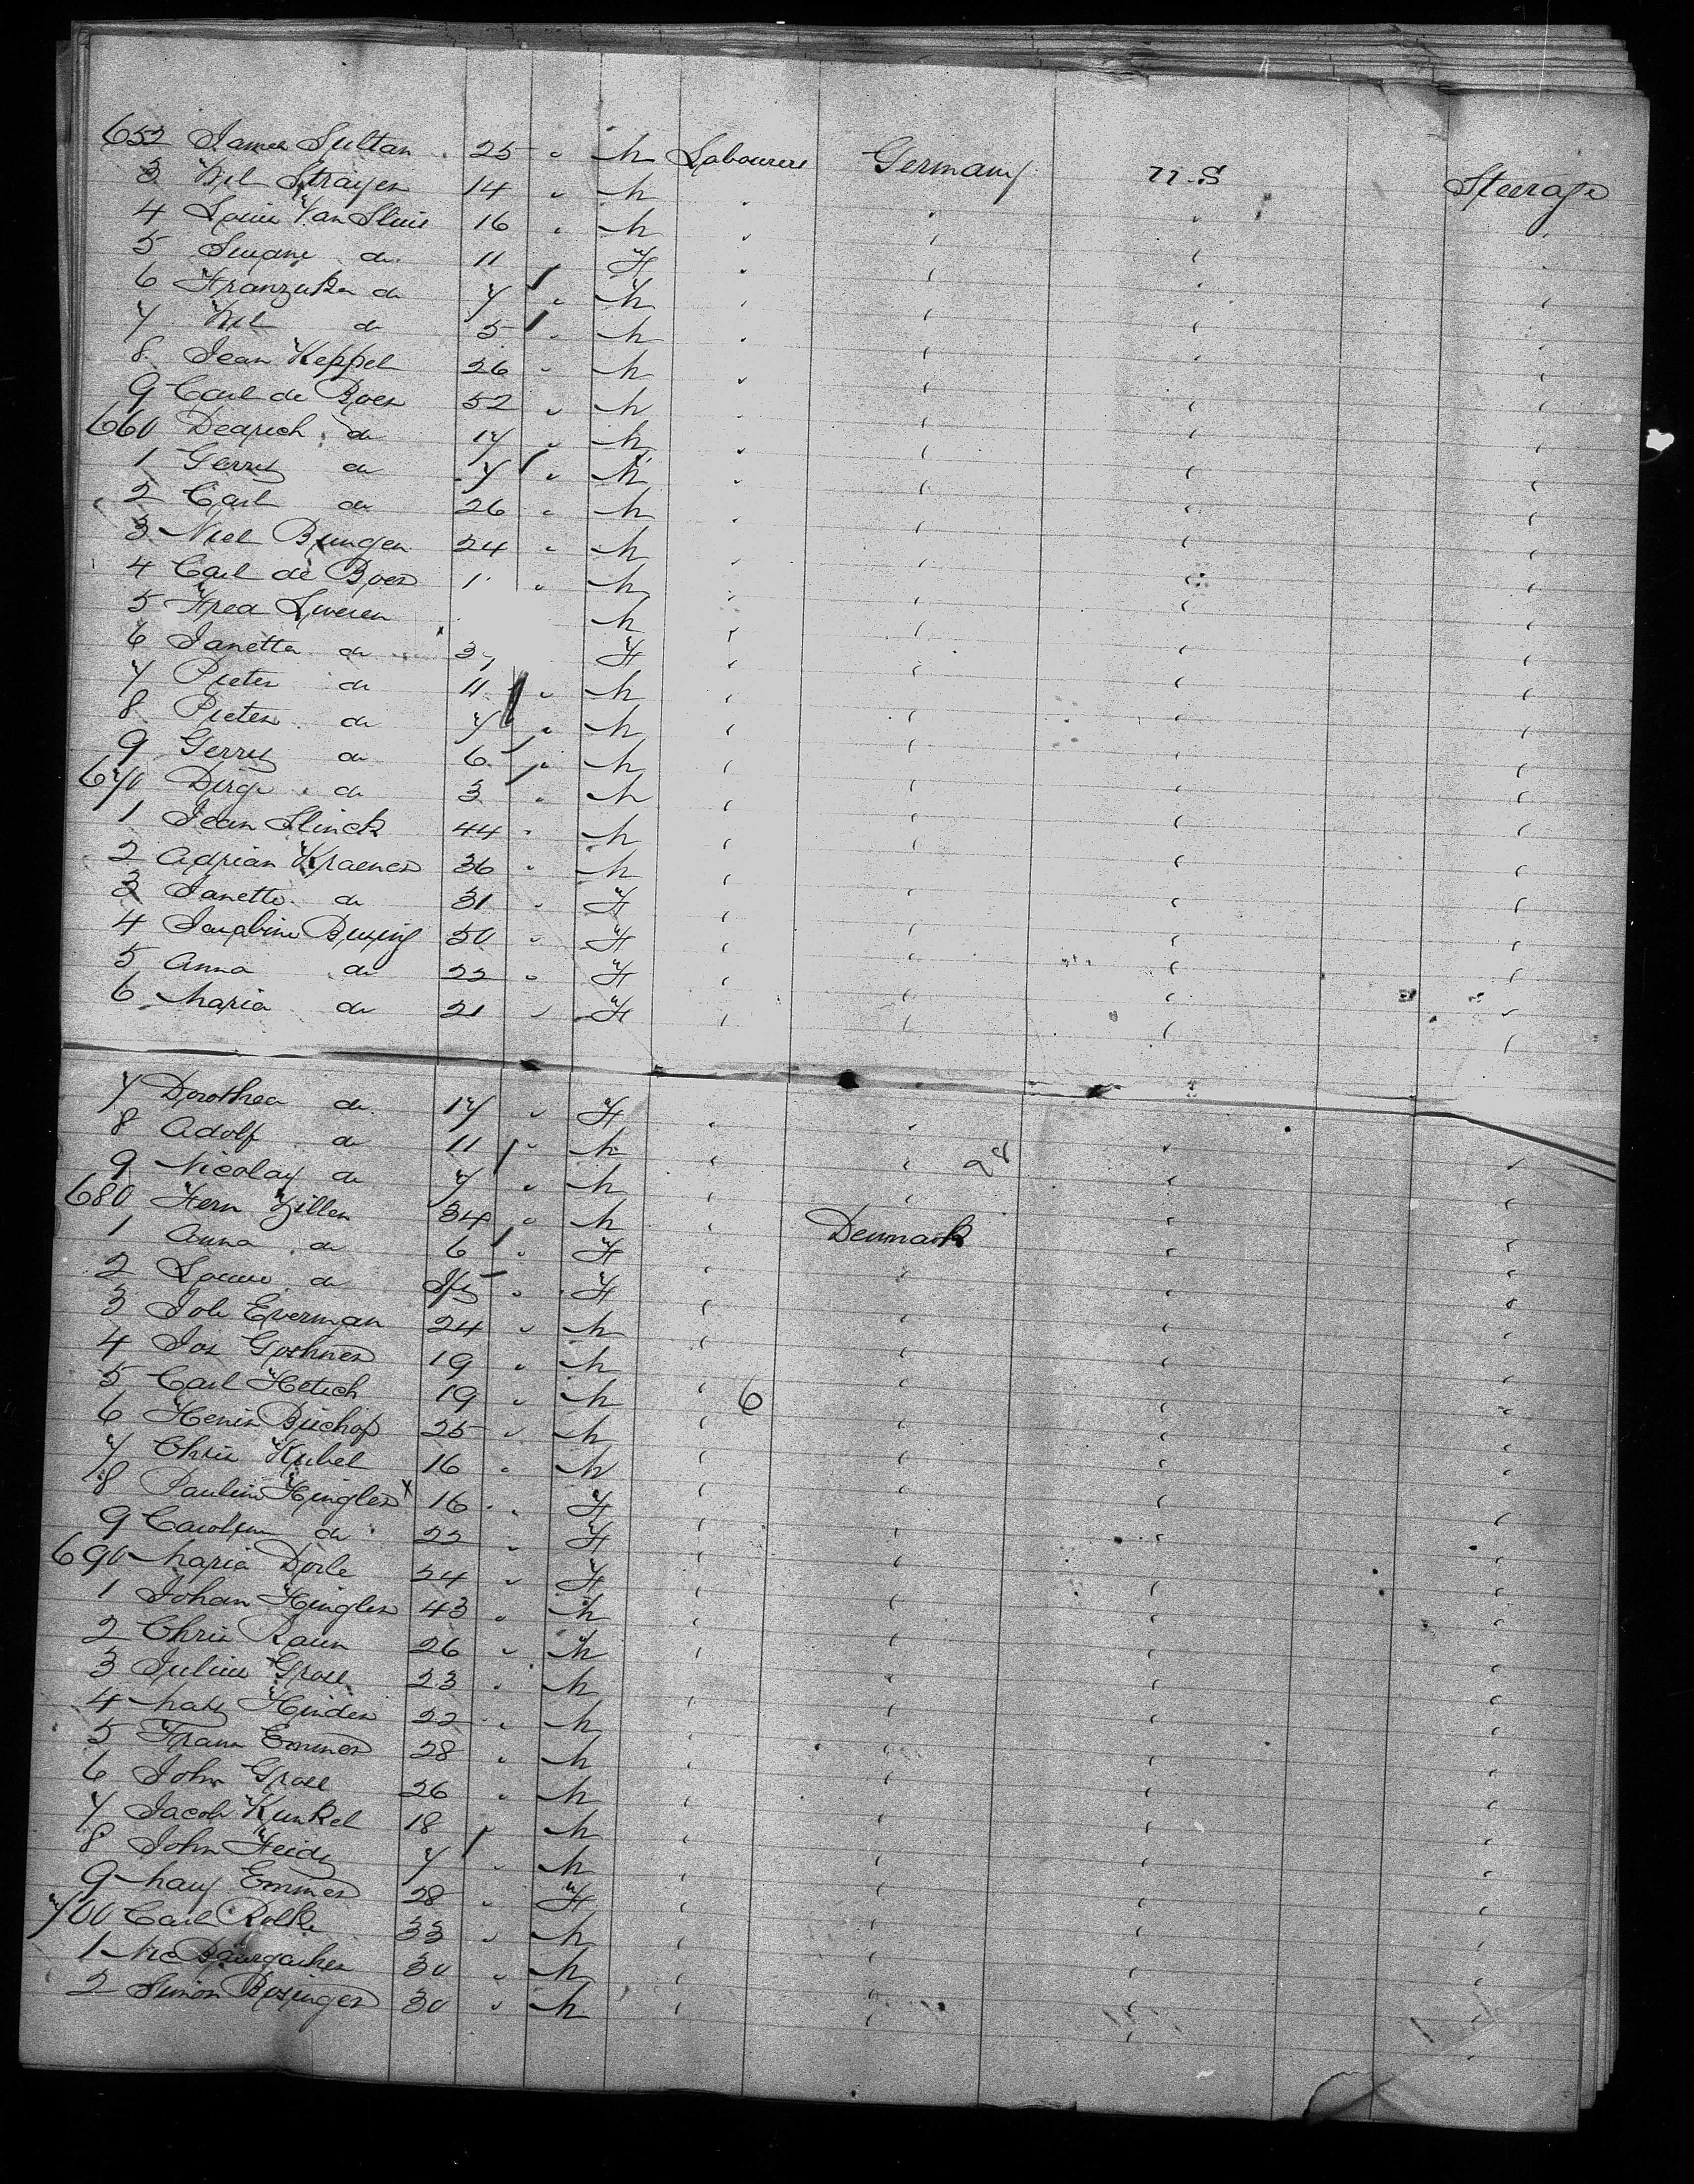 652 James Sultan 25 " M Labourers Germany U.S Steerage
3 Wil Strayer 14 " M " " " "
4 Louis Van Sluis 16 " M " " " "
5 do 11 " F " " " "
6 do 7 " M " " " "
7 Wil do 5 " M " " " "
8 Jean Keppel 26 " M " " " "
9 Carl de Boer 52 " M " " " "
660 do 17 " M " " " "
1 Gerrit do 7 " M " " " "
2 Carl do 26 " M " " " "
3 Niel Bungen 24 " M " " " "
4 Carl de Boer 1 " M " " " "
5 M " " " "
6 Janetta do F " " " "
7 Pieter do 11 " M " " " "
8 Pieter do 7 " M " " " "
9 Gerrit do 6 " M " " " "
670 Dirge do 3 " M " " " "
1 Jean Slinck 44 " M " " " "
2 Adrian Kraener 36 " M " " " "
3 Janette do 31 " F " " " "
4 50 " F " " " "
5 Anna do 22 " F " " " "
6 Maria do 21 " F " " " "
7 Dorothea do 17 " F " " " "
8 Adolf do 11 " M " " " "
9 Nicolay do 7 " M " " " "
680 Herm Zillen 34 " M " Denmark " "
1 Anna do 6 " F " " " "
2 do " F " " " "
3 Joh Everman 24 " M " " " "
4 Jos Goshner 19 " M " " " "
5 Carl Hetich 19 " M " 6 " " "
6 Bischof 25 " M " " " "
7 Chris Kubel 16 " M " " " "
8 Pauline Hingler x 16 " F " " " "
9 do 22 " F " " " "
690 Maria Dorle 24 " F " " " "
1 Johan Hingler 43 " M " " " "
2 Chris Raun 26 " M " " " "
3 Julius Grose 23 " M " " " "
4 22 " M " " " "
5 Franz Emmer 28 " M " " " "
6 John Grose 26 " M " " " "
7 Jacob Kunkel 18 " M " " " "
8 John 7 " M " " " "
9 Mary Emmer 28 " F " " " "
700 Carl 33 " M " " " "
1 Nic 30 " M " " " "
2 Simon 30 " M " " " "